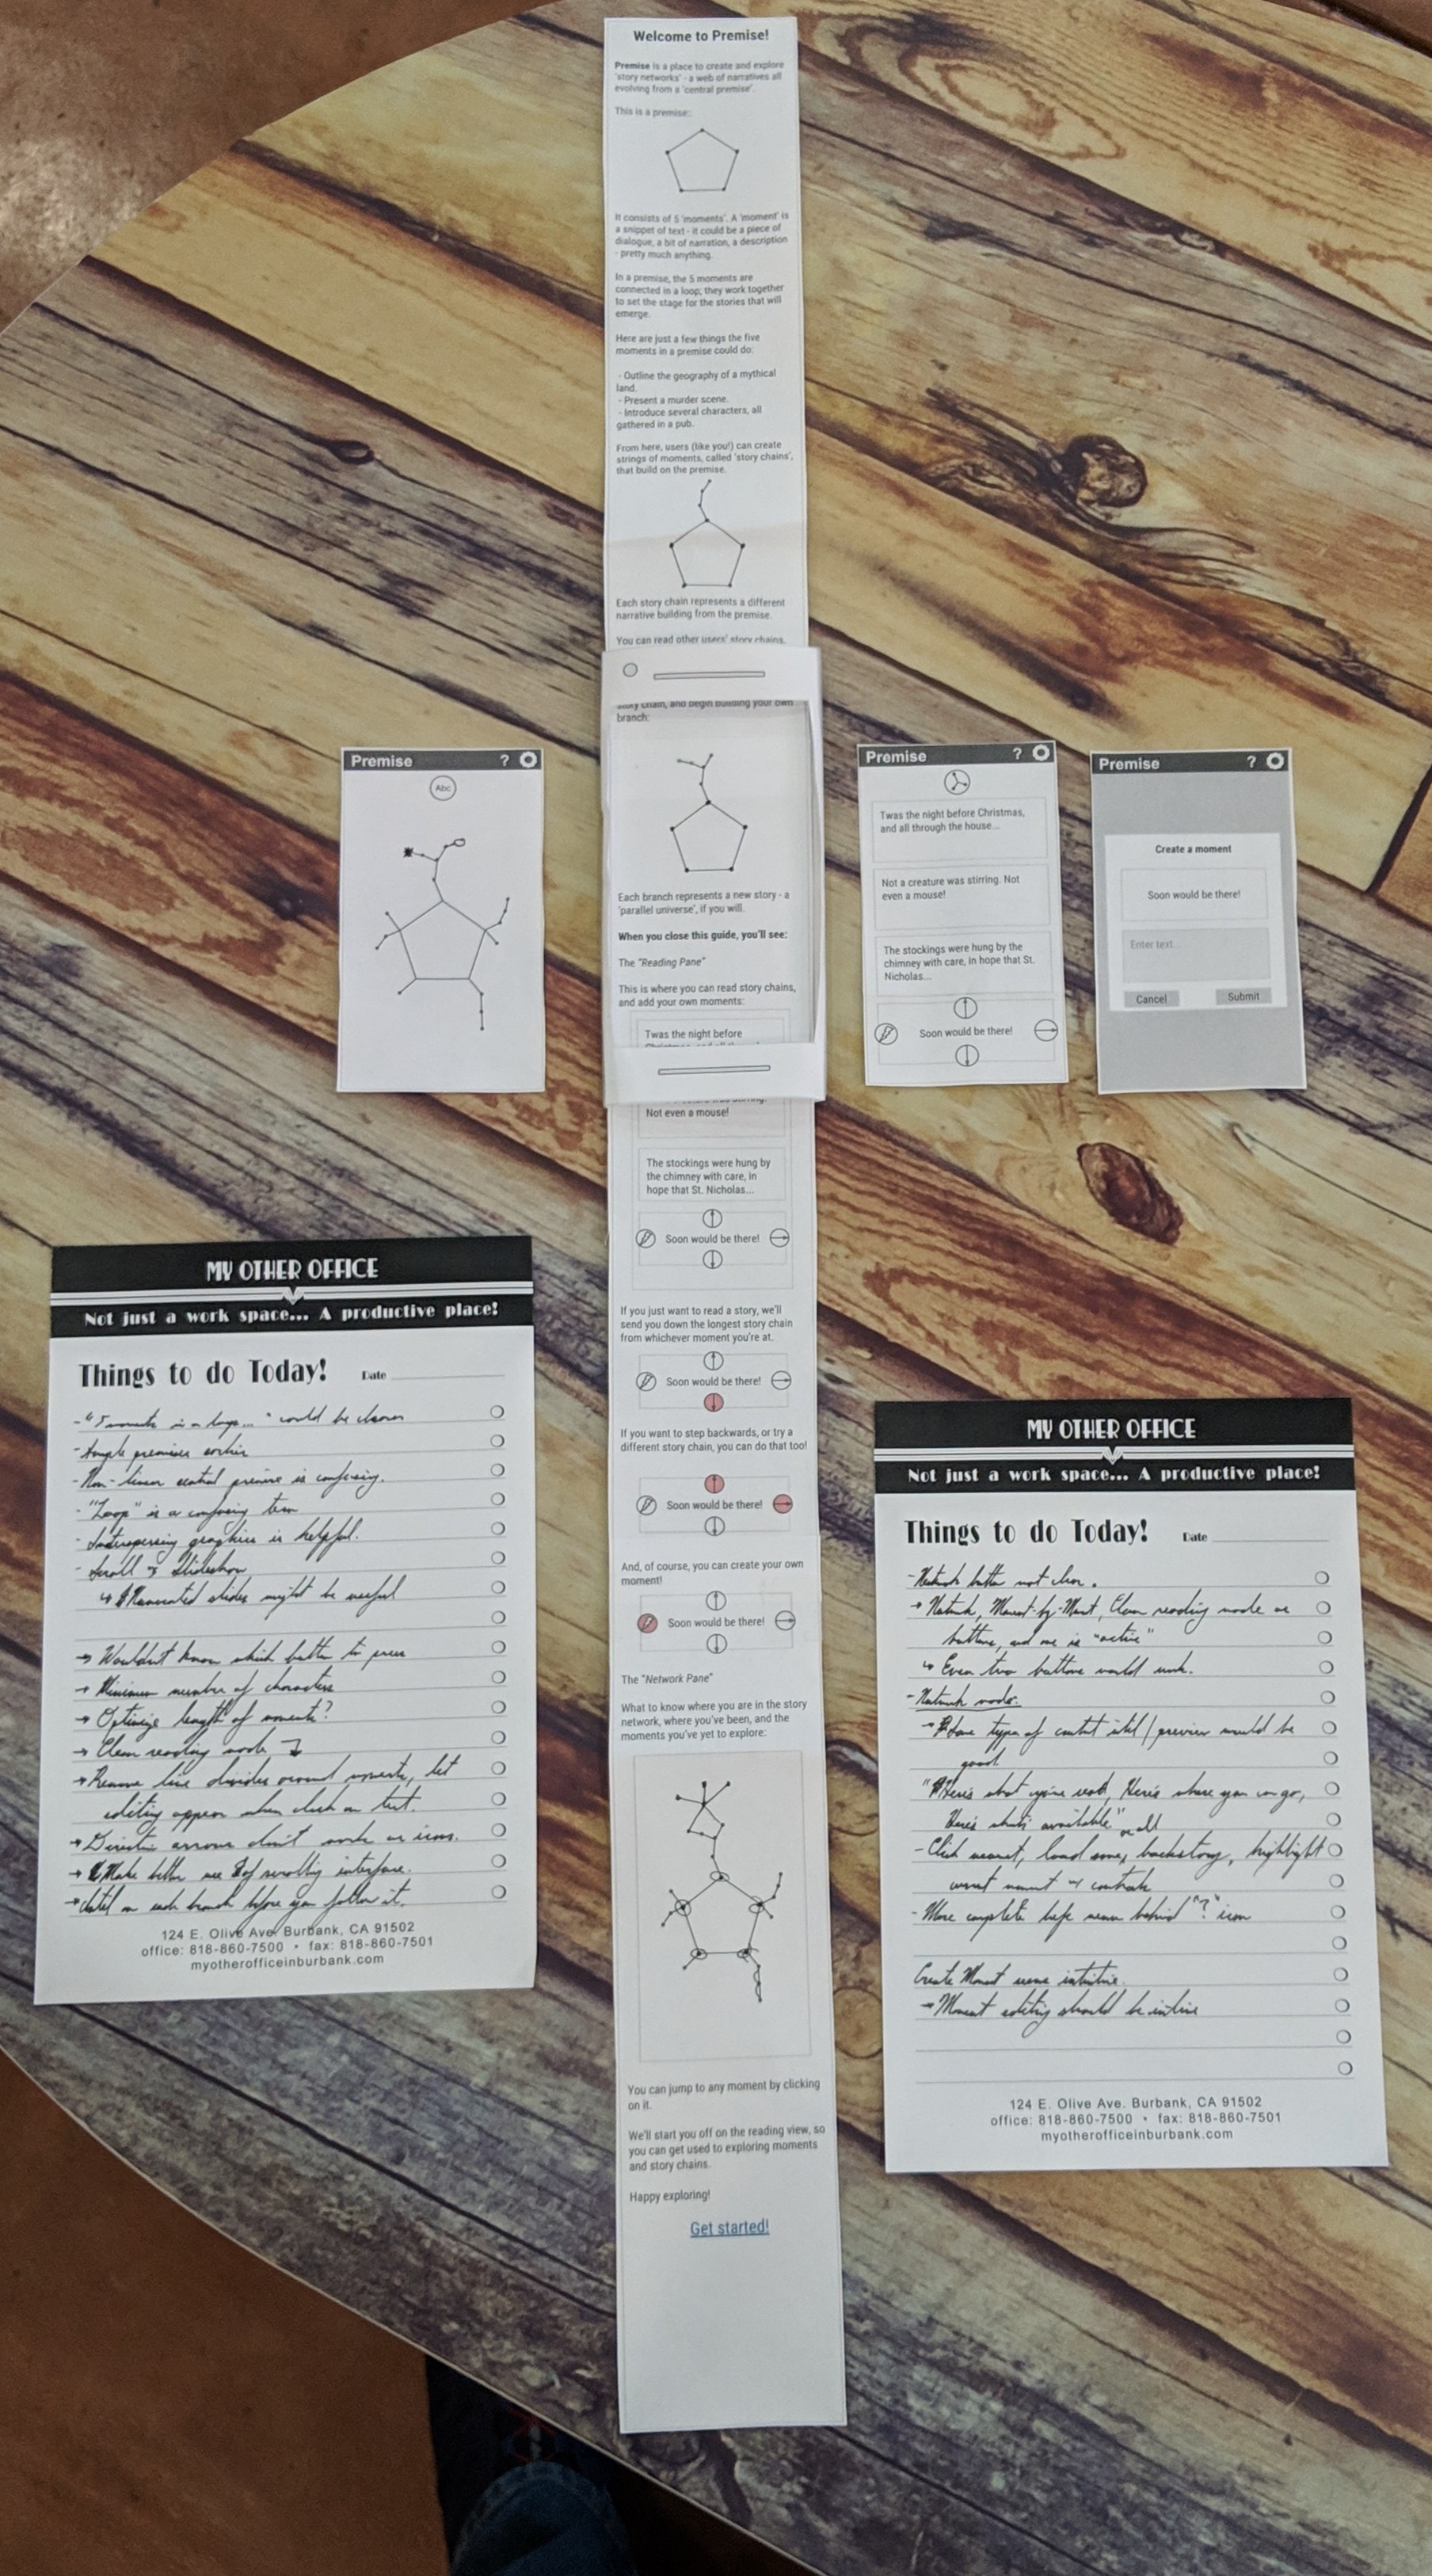 Welcome to Premise!
Premise is a place to create and explore
'story networks' - a web of narratives all
evolving from a 'central premise'.
This is a premise:
It consists of 5 'moments'. A 'moment' is
a snippet of text - it could be a piece of
dialogue, a bit of narration, a description
- pretty much anything.
In a premise, the 5 moments are
connected in a loop; they work together
to set the stage for the stories that will
emerge.
Here are just a few things the five
moments in a premise could do:
- Outline the geography of a mythical
land.
- Present a murder scene.
- Introduce several characters, all
gathered in a pub.
From here, users (like you!) can create
strings of moments, called 'story chains',
that build on the premise.
Each story chain represents a different
narrative building from the premise.
You can read other users' story chains,
story chain, and begin building your own
branch:
Each branch represents a new story - a
'parallel universe', if you will.
When you close this guide, you'll see:
The "Reading Pane"
This is where you can read story chains,
and add your own moments:
Twas the night before
Not even a mouse!
The stockings were hung by
the chimney with care, in
hope that St. Nicholas...
Soon would be there!
If you just want to read a story, we'll
send you down the longest story chain
from whichever moment you're at.
Soon would be there!
If you want to step backwards, or try a
different story chain, you can do that too!
Soon would be there!
And, of course, you can create your own
moment!
Soon would be there!
The "Network Pane"
What to know where you are in the story
network, where you've been, and the
moments you've yet to explore:
You can jump to any moment by clicking
on it.
We'll start you off on the reading view, so
you can get used to exploring moments
and story chains.
Happy exploring!
Get started!
Premise ?
Abc
Premise ?
Twas the night before Christmas,
and all through the house...
Not a creature was stirring. Not
even a mouse!
The stockings were hung by the
chimney with care, in hope that St.
Nicholas...
Soon would be there!
Premise ?
Create a moment
Soon would be there!
Enter text...
Cancel Submit
MY OTHER OFFICE
Not just a work space... A productive place!
Things to do Today! Date
- "5 moments in a loop..." could be clearer
- Sample premises earlier
- Non-linear central premise is confusing.
- "Loop" is a confusing term
- Interspersing graphics is helpful.
- Scroll Slideshow
↳ slides might be useful
→ Wouldn't know which button to press
→ Minimum number of characters
→ Optimize length of moments?
→ Clean reading mode
→ Remove line dividers around moments, let
editing appear when click on text.
→ Direction arrows don't work as icons.
→ Make better use of scrolling interface.
→ on each branch before you follow it.
124 E. Olive Ave. Burbank, CA 91502
office: 818-860-7500 • fax: 818-860-7501
myotherofficeinburbank.com
MY OTHER OFFICE
Not just a work space... A productive place!
Things to do Today! Date
- Network button not clear.
→ Network, Moment-by-Moment, Clean reading mode as
buttons, and one is "active"
↳ Even two buttons would work.
- Network mode:
→ Some type of content / preview would be
good.
"Here's what you've read, Here's where you can go,
Here's what's available" or all
- Click moment, load some backstory, highlight
current moment w/ controls
- More complete help menu behind "?" icon
Create Moment seems intuitive.
→ Moment editing should be inline
124 E. Olive Ave. Burbank, CA 91502
office: 818-860-7500 • fax: 818-860-7501
myotherofficeinburbank.com